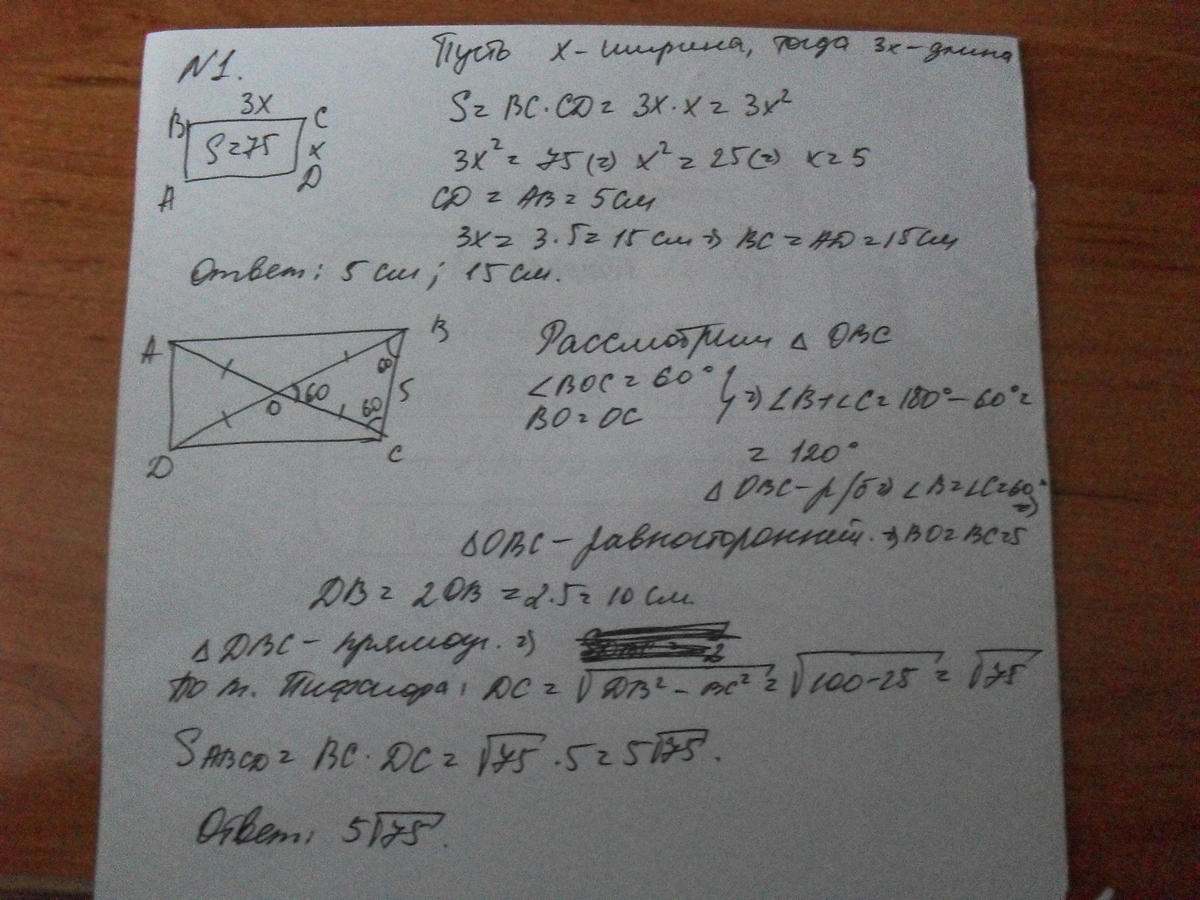 N1.
Пусть x - ширина, тогда 3x - длина
3x
B
C
S=75
x
A
D
S = BC·CD = 3x·x = 3x²
3x² = 75 (=) x² = 25 (=) x = 5
CD = AB = 5 см
3x = 3·5 = 15 см => BC = AD = 15 см
Ответ: 5 см; 15 см.
A
B
60
O
60
60
5
D
C
Рассмотрим △ OBC
∠BOC = 60°
BO = OC
} => ∠B+∠C = 180° - 60° =
= 120°
△ OBC - р/б => ∠B=∠C=60° =>
△OBC - равносторонний. => BO = BC = 5
DB = 2OB = 2·5 = 10 см.
△ DBC - прямоуг. =>
По т. Пифагора: DC = √DB² - BC² = √100-25 = √75
SABCD = BC · DC = √75 · 5 = 5√75.
Ответ: 5√75.